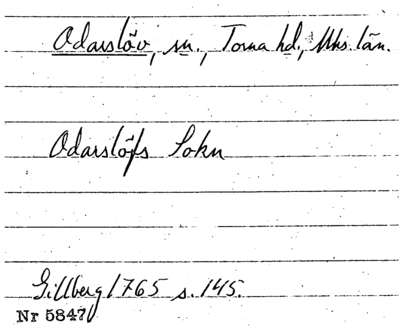 Odarslöv, sn., Torna hd., Mhs. län.
Odarslöfs Sokn
Gillberg 1765 s. 145.
Nr 5847